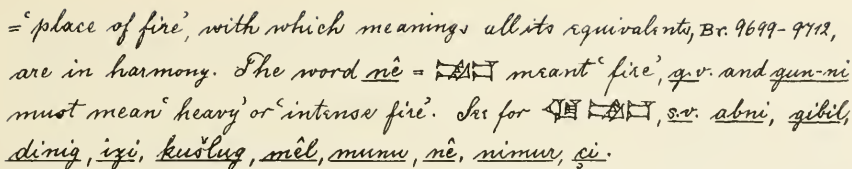 =‘place of fire’, with which meanings all its equivalents, Br. 9699-9712,
are in harmony. The word nê = 𒉈 meant ‘fire’, q.v. and gun-ni
must mean ‘heavy’ or ‘intense fire’. See for 𒆠𒉈, s.v. abni, gibil,
dinig, izi, kušlug, mêl, munu, nê, nimur, çi.